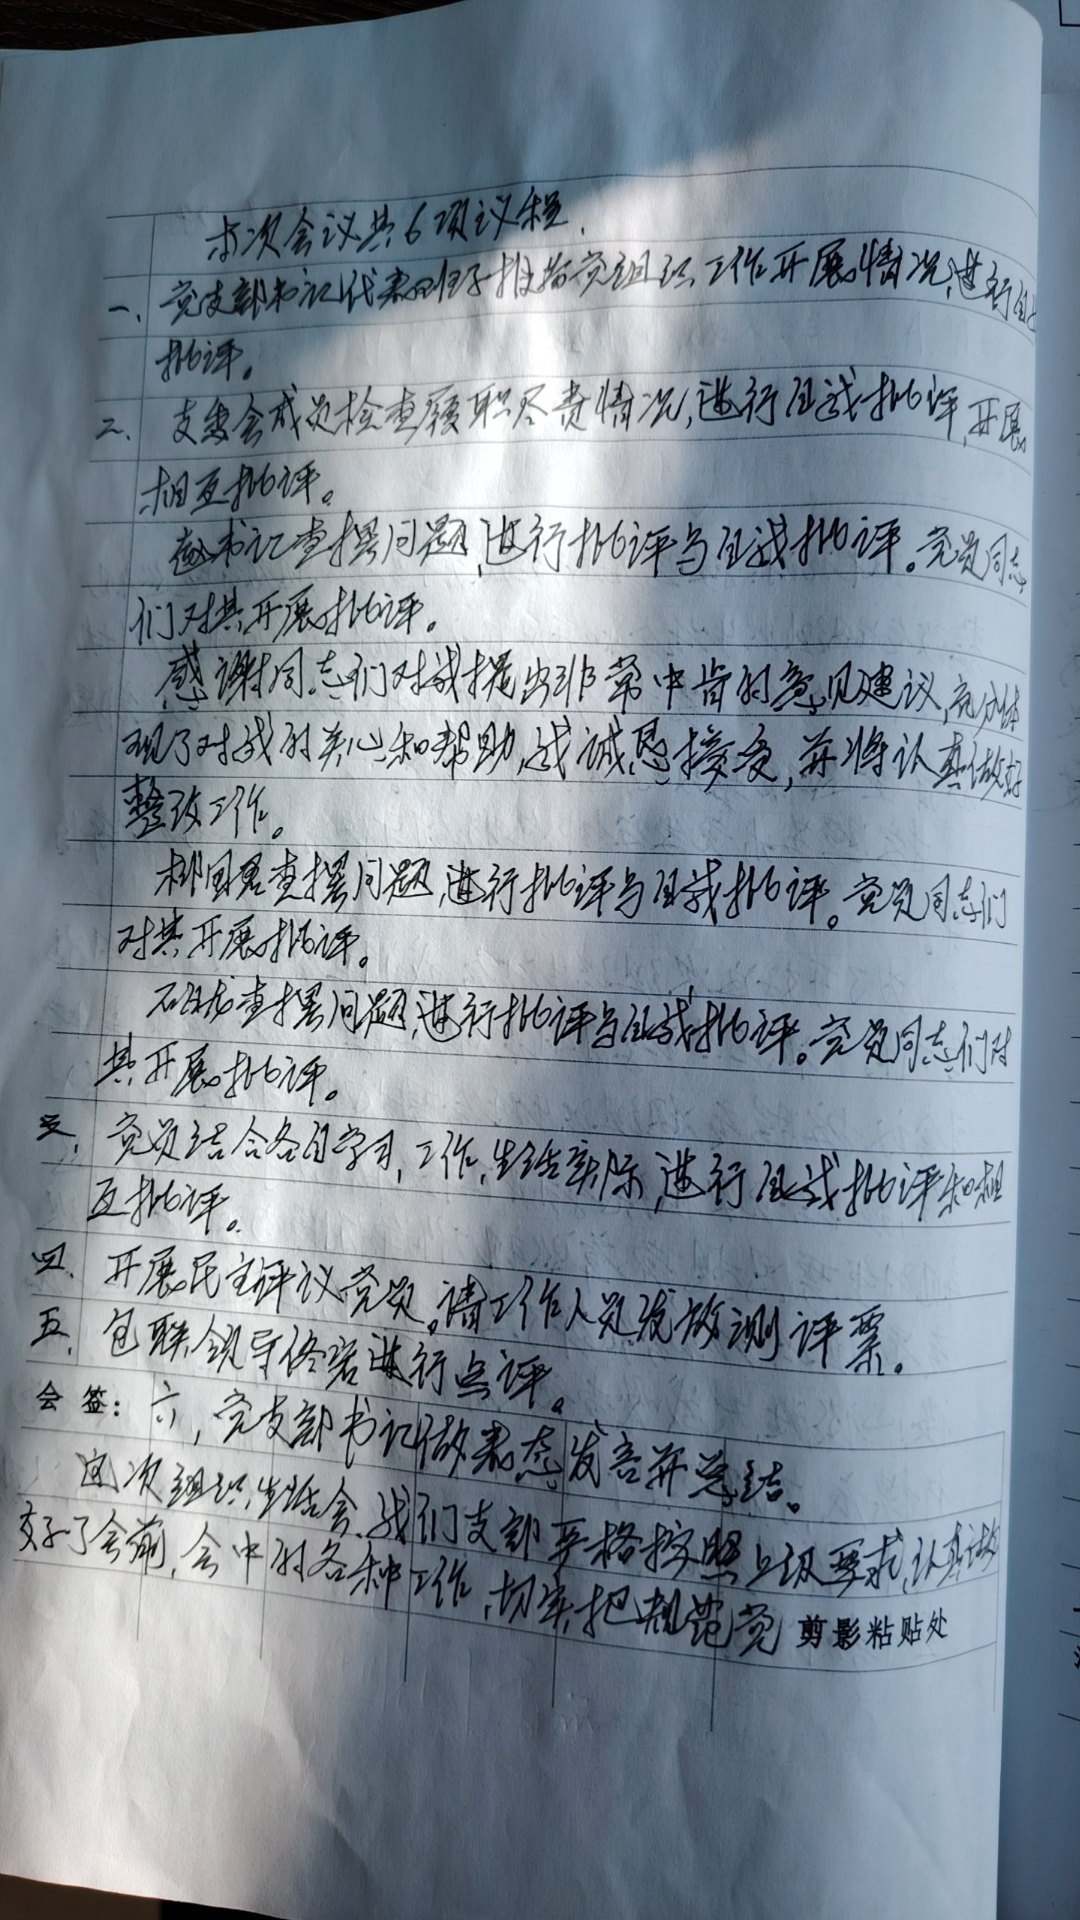 本次会议共6项议程.
一、党支部书记代表班子报告党组织工作开展情况,进行自我
批评。
二、支委会成员检查履职尽责情况,进行自我批评,开展
相互批评。
书记查摆问题,进行批评与自我批评。党员同志
们对其开展批评。
感谢同志们对我提出非常中肯的意见建议,充分体
现了对我的关心和帮助,我诚恳接受,并将认真做好
整改工作。
查摆问题,进行批评与自我批评。党员同志们
对其开展批评。
查摆问题,进行批评与自我批评。党员同志们对
其开展批评。
三、党员结合各自学习,工作,生活实际,进行自我批评和相
互批评。
四、开展民主评议党员。请工作人员发放测评票。
五、包联领导进行点评。
会签: 六,党支部书记做表态发言并总结。
这次组织生活会,我们支部严格按照上级要求,认真做
好了会前,会中的各种工作,切实把规范党 剪影粘贴处